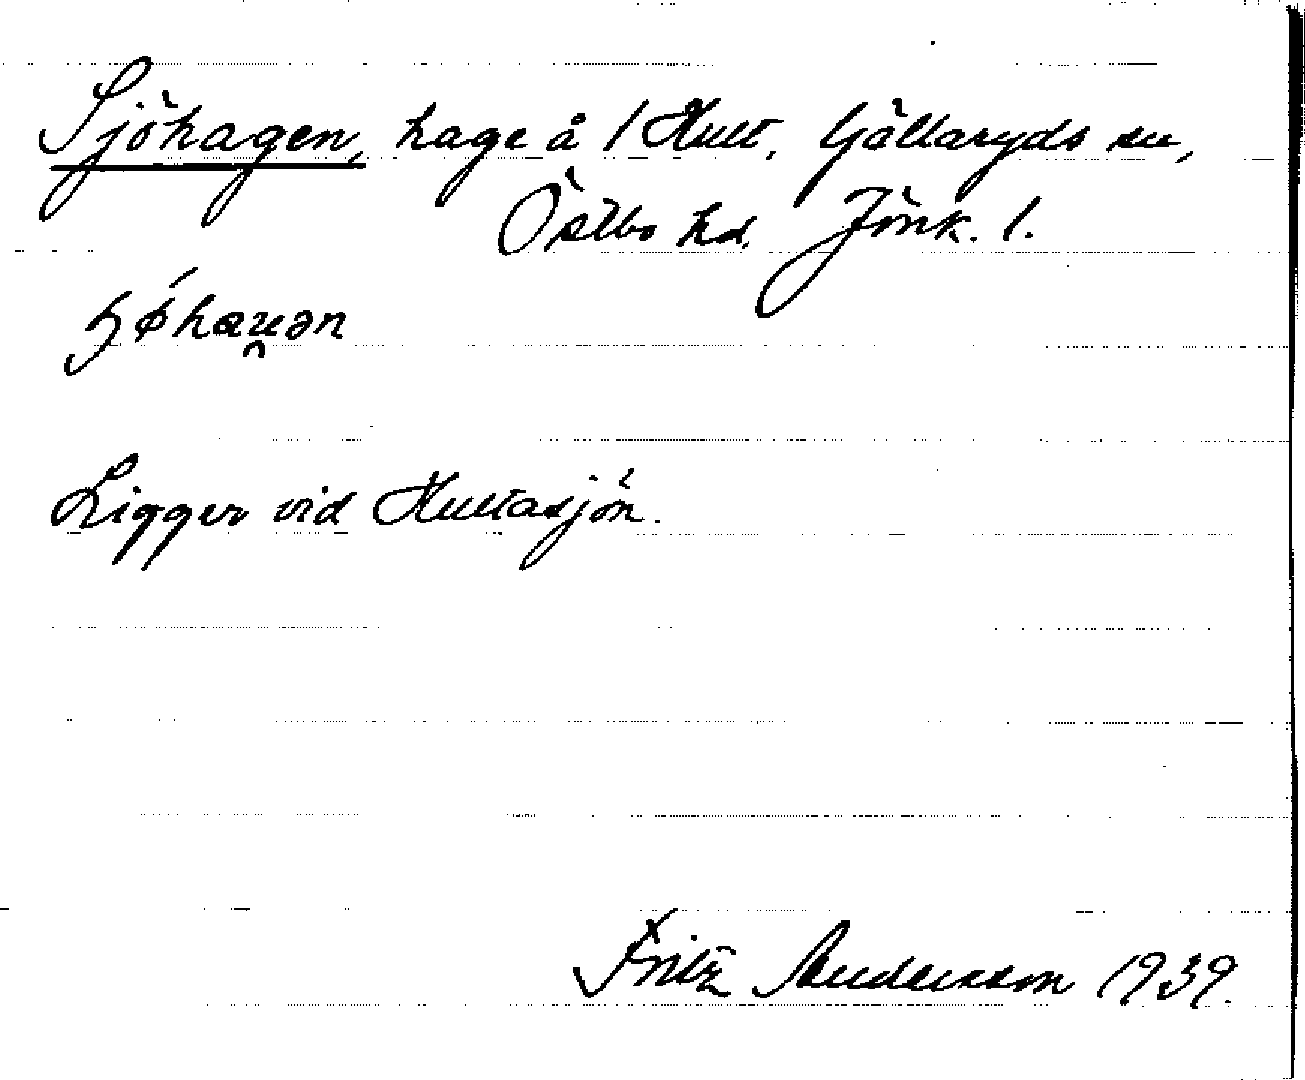 Sjöhagen, hage å 1 Hult, Gällaryds sn,
Östbo hd. Jönk. l.
Ligger vid Hultasjön.
Fritz Andersson 1939.